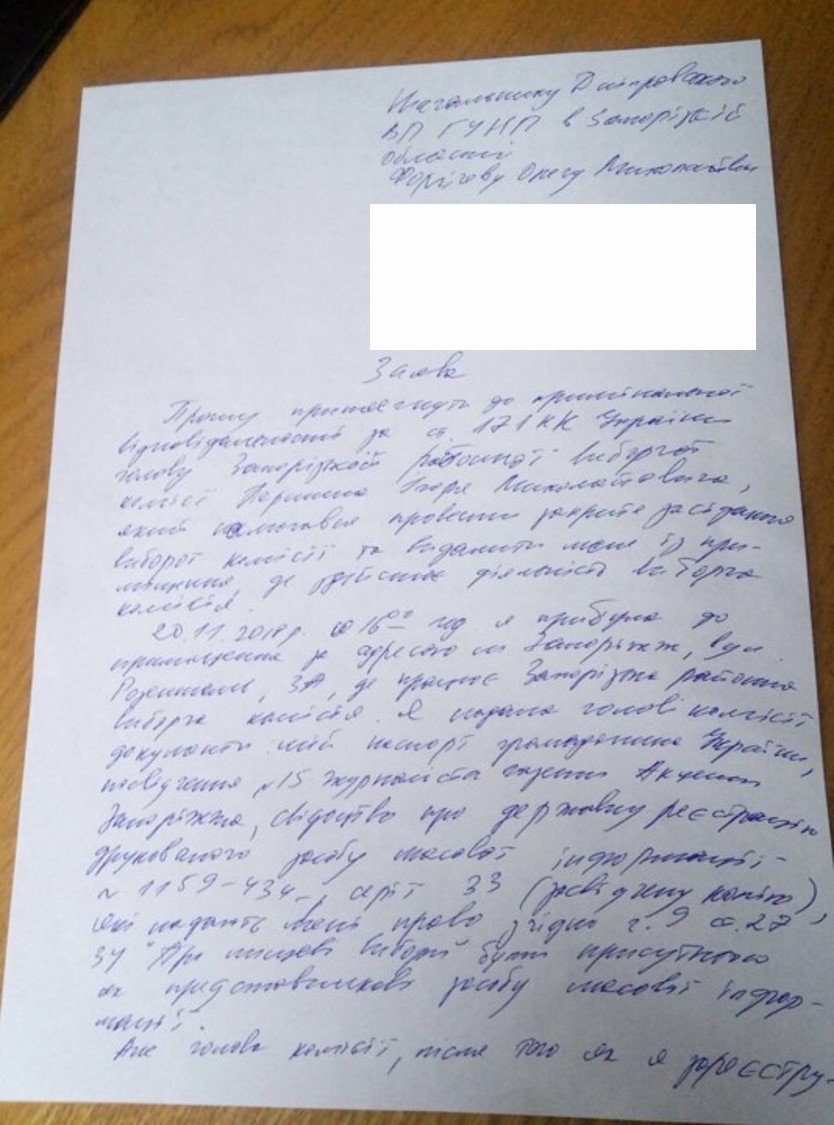 Начальнику Дніпровського
ВП ГУНП в Запорізькій
області
Олегу Миколайовичу
Заява
Прошу притягнути до кримінальної
відповідальності за ст. 171 КК України
голову Запорізької районної виборчої
комісії Ігоря Миколайовича,
який намагався провести закрите засідання
виборчої комісії та видалити мене із при-
міщення, де здійснює діяльність виборча
комісія.
20.11.2018р. о 16⁰⁰ год. я прибула до
приміщення за адресою м. Запоріжжя, вул.
3А, де працює Запорізька районна
виборча комісія. Я надала голові комісії
документи: мій паспорт громадянина України,
посвідчення №15 журналіста газети Акценти
Запоріжжя, свідоцтво про державну реєстрацію
друкованого засобу масової інформації
№ 1159-434-, серії ЗЗ (засвідчену копію),
які надають мені право згідно ч. 9 ст. 27
ЗУ "Про місцеві вибори" бути присутньою
як представникові засобу масової інфор-
мації.
Але голова комісії, після того як я зареєстру-